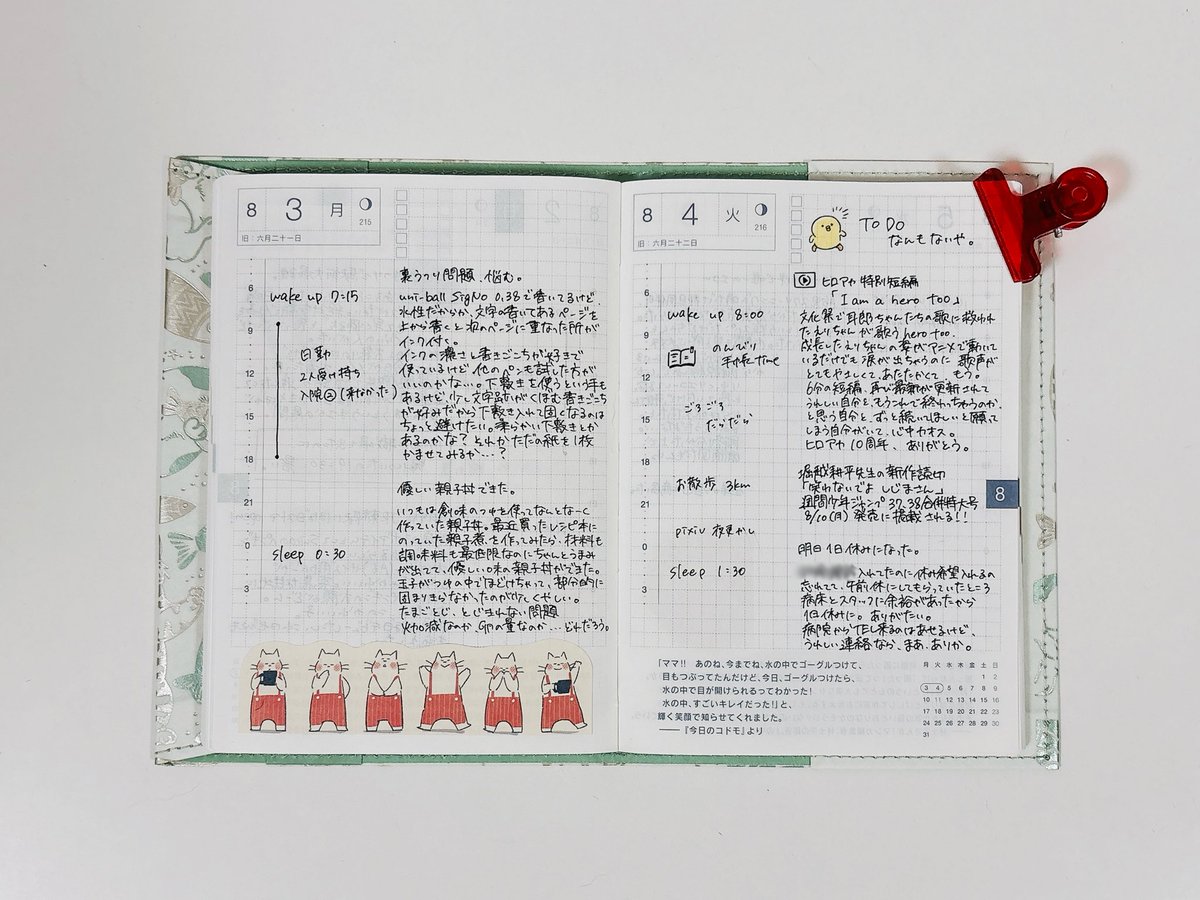 8 3 月
215
旧：六月二十一日
6
9
12
15
18
21
0
3
wake up 7:15
日勤
2人受け持ち
入院② (来なかった)
sleep 0:30
裏うつり問題、悩む。
uni-ball SigNo 0.38で書いてるけど、
水性だからか、文字の書いてあるページを
上から書くと次のページに重なった所が
インク付く。
インクの濃さと書きごこちが好きで
使っているけど他のペンも試した方が
いいのかな。下敷きを使うという手も
あるけど、少し文字跡がくぼむ書きごこち
が好みだから下敷き入れて固くなるのは
ちょっと避けたい。柔らかい下敷きとか
あるのかな？とれかただの紙を1枚
かませてみるか…？
優しい親子丼できた。
いつもは創味のつゆを使ってなんとな〜く
作っていた親子丼。最近買ったレシピ本に
のっていた親子煮を作ってみたら、材料も
調味料も最低限なのにちゃんとうまみ
が出てて、優しい味の親子丼ができた。
玉子がつゆの中でほどけちゃって、部分的に
固まりきらなかったのが少しくやしい。
たまごとじ、とじきれない問題
火加減なのか、卵の量なのか…どれだろう。
8 4 火
216
旧：六月二十二日
6
9
12
15
18
21
0
3
wake up 8:00
のんびり
手帳time
ごろごろ
だらだら
お散歩 3km
pixiv 夜更かし
sleep 1:30
TO DO
なんもないや。
ヒロアカ 特別短編
「I am a hero too」
文化祭で耳郎ちゃんたちの歌に救われ
たえりちゃんが歌うhero too.
成長したえりちゃんの姿がアニメで動いて
いるだけでも涙が出ちゃうのに、歌声が
とてもやさしくて、あたたかくて、もう。
6分の短編、再び最終が更新されて
うれしい自分と、もうこれで終わっちゃうのか、
と思う自分と、ずっと続いてほしいと願って
しまう自分がいて、心中カオス。
ヒロアカ10周年、ありがとう。
堀越耕平先生の新作読切
「笑わないでよ しじまさん」
週間少年ジャンプ37、38合併特大号
8/10(月)発売に掲載される!!
明日1日休みになった。
入れてたのに休み希望入れるの
忘れてて、午前休にしてもらっていたところ
病床とスタッフに余裕があったから
1日休みに。ありがたい。
病院からTEL来るのはあせるけど、
うれしい連絡なら、まあ、ありか。
8
「ママ!!　あのね、今までね、水の中でゴーグルつけて、
目もつぶってたんだけど、今日、ゴーグルつけたら、
水の中で目が開けられるってわかった！
水の中、すごいキレイだった！」と、
輝く笑顔で知らせてくれました。
――『今日のコドモ』より
月 火 水 木 金 土 日
1 2
3 4 5 6 7 8 9
10 11 12 13 14 15 16
17 18 19 20 21 22 23
24 25 26 27 28 29 30
31